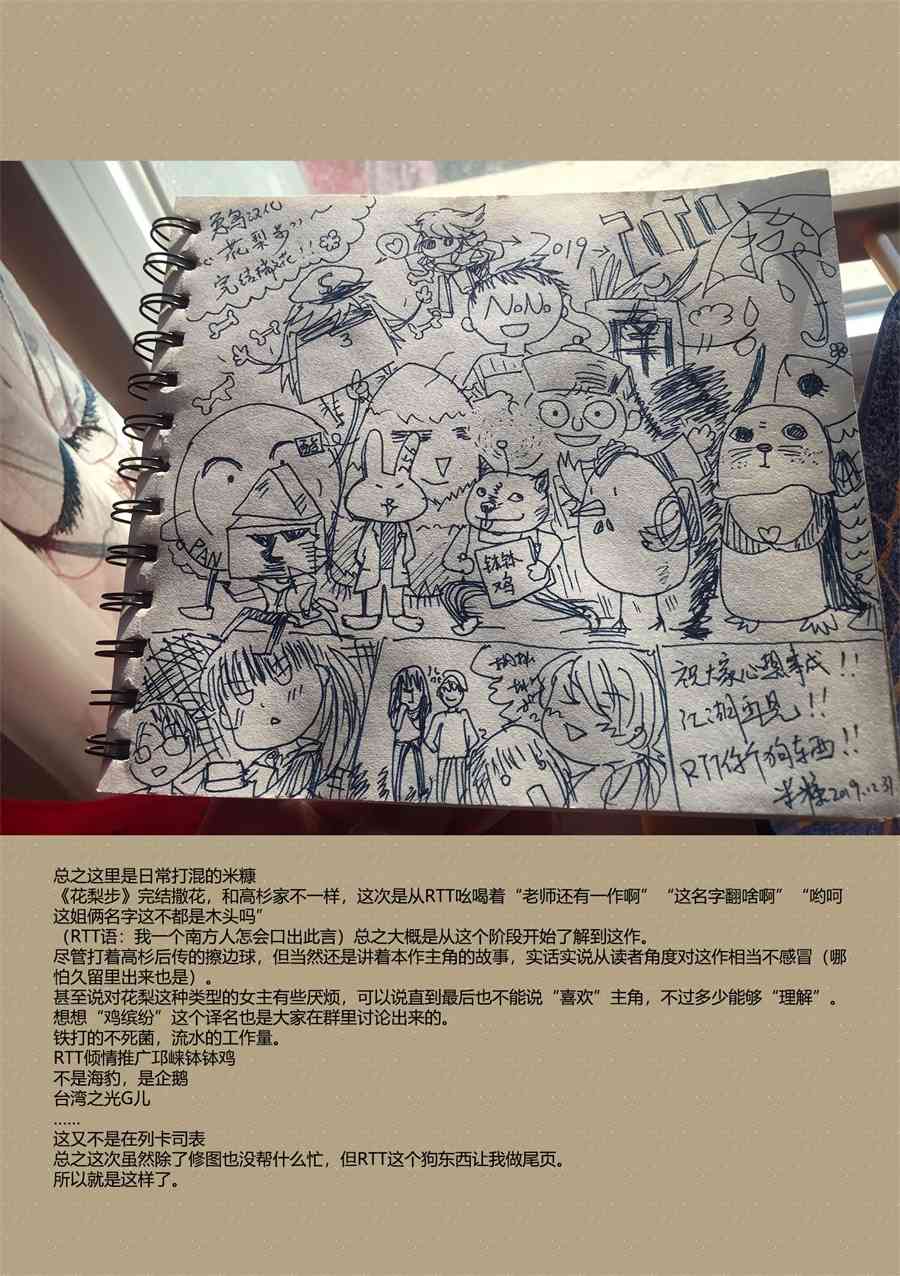 兎鸟汉化
花梨步
完结撒花!!
2019→
2020
NoNo
3
PAN
钵钵
鸡
祝大家心想事成!!
江湖再见!!
RTT你个狗东西!!
米糠2019.12.31
总之这里是日常打混的米糠
《花梨步》完结撒花，和高杉家不一样，这次是从RTT吆喝着“老师还有一作啊”“这名字翻啥啊”“哟呵
这姐俩名字这不都是木头吗”
（RTT语：我一个南方人怎会口出此言）总之大概是从这个阶段开始了解到这作。
尽管打着高杉后传的擦边球，但当然还是讲着本作主角的故事，实话实说从读者角度对这作相当不感冒（哪
怕久留里出来也是）。
甚至说对花梨这种类型的女主有些厌烦，可以说直到最后也不能说“喜欢”主角，不过多少能够“理解”。
想想“鸡缤纷”这个译名也是大家在群里讨论出来的。
铁打的不死菌，流水的工作量。
RTT倾情推广邛崃钵钵鸡
不是海豹，是企鹅
台湾之光G儿
……
这又不是在列卡司表
总之这次虽然除了修图也没帮什么忙，但RTT这个狗东西让我做尾页。
所以就是这样了。